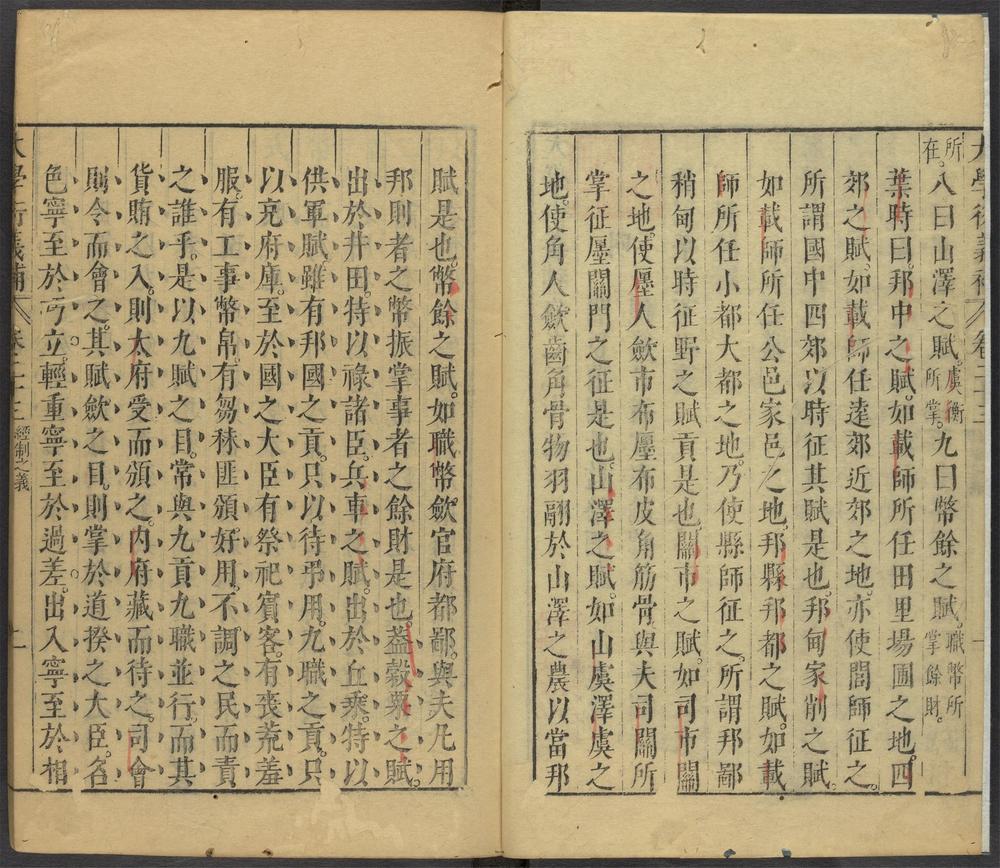 大學衍義補 卷二十三 一
所在。八曰山澤之賦。虞衡所掌。九曰幣餘之賦。職幣所掌餘財。
葉時曰。邦中之賦。如載師所任田里場圃之地。四
郊之賦。如載師任遠郊近郊之地。亦使閭師征之。
所謂國中四郊以時征其賦是也。邦甸家削之賦。
如載師所任公邑家邑之地。邦縣邦都之賦。如載
師所任小都大都之地。乃使縣師征之。所謂邦鄙
稍甸以時征野之賦貢是也。關市之賦。如司市關
之地。使廛人斂市布廛布皮角筋骨。與夫司關所
掌征廛關門之征是也。山澤之賦。如山虞澤虞之
地。使角人歛齒角骨物羽翮於山澤之農以當邦
賦是也。幣餘之賦。如職幣歛官府都鄙。與夫凡用
邦則者之幣振掌事者之餘財是也。葢穀粟之賦。
出於井田。特以祿諸臣。兵車之賦。出於丘乘。特以
供軍賦。雖有邦國之貢。只以待弔用。九職之貢。只
以充府庫。至於國之大臣有祭祀賓客。有喪荒羞
服。有工事幣帛。有芻秣匪頒。好用。不調之民而責
之誰乎。是以九賦之目。常與九貢九職並行。而其
貨賄之入。則太府受而頒之。內府藏而待之。司會
則令而會之。其賦歛之目。則掌於道揆之大臣。名
色寧至於亏立。輕重寧至於過差。出入寧至於相
大學衍義補 卷二十三 經制之義 二